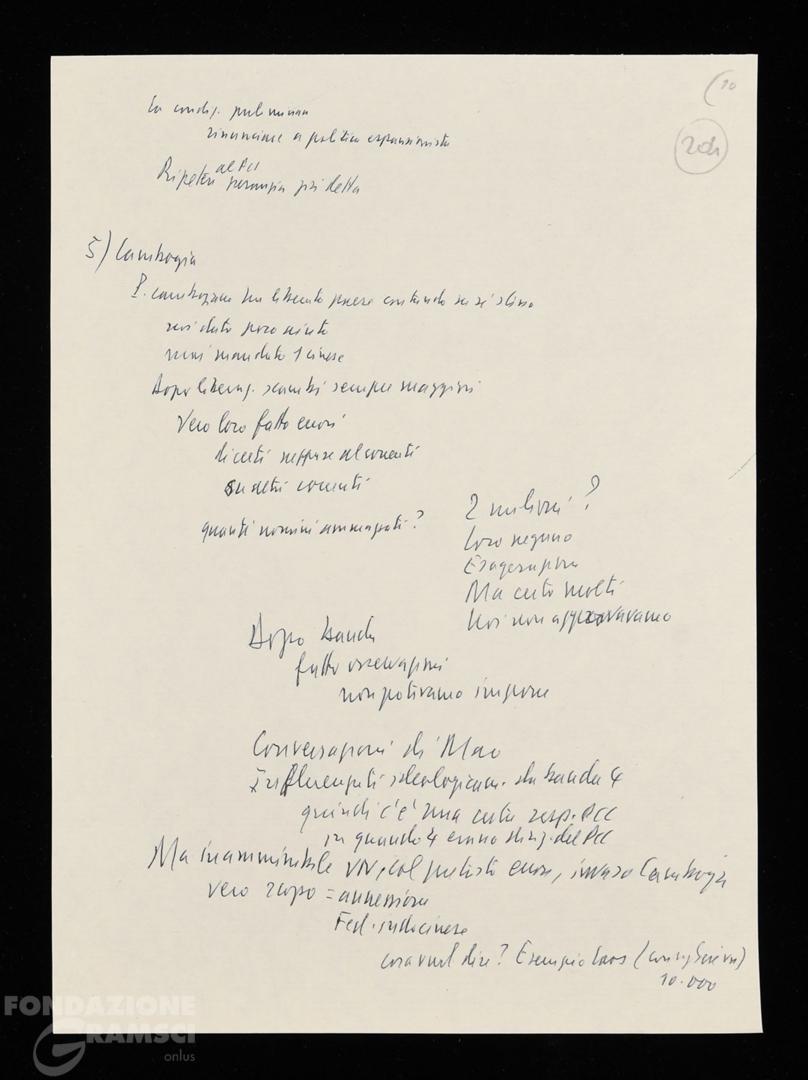 (10
204
La condiz. preliminare
rinunciare a politica espansionista
Ripetere al PCI garanzia già detta
5) Cambogia
P. cambogiano ha liberato paese contando su sé stesso
noi dato poco aiuto
mai mandato 1 cinese
Dopo liberaz. scambi sempre maggiori
Vero loro fatto errori
di certi neppure al corrente
su altri correnti
quanti uomini ammazzati?
2 milioni?
Loro negano
Esagerazione
Ma certo molti
Noi non approvavamo
Dopo banda
fatto osservazioni
non potevamo imporre
Conversazioni di Mao
Influenzati ideologicam. da banda 4
quindi c'è una certa resp. PCC
in quando 4 erano dirig. del PCC
Ma inammissibile VN, col pretesto errori, invaso Cambogia
vero scopo = annessione
Fed. indocinese
cosa vuol dire? Esempio Laos (consiglieri vn)
10.000
FONDAZIONE
GRAMSCI
onlus